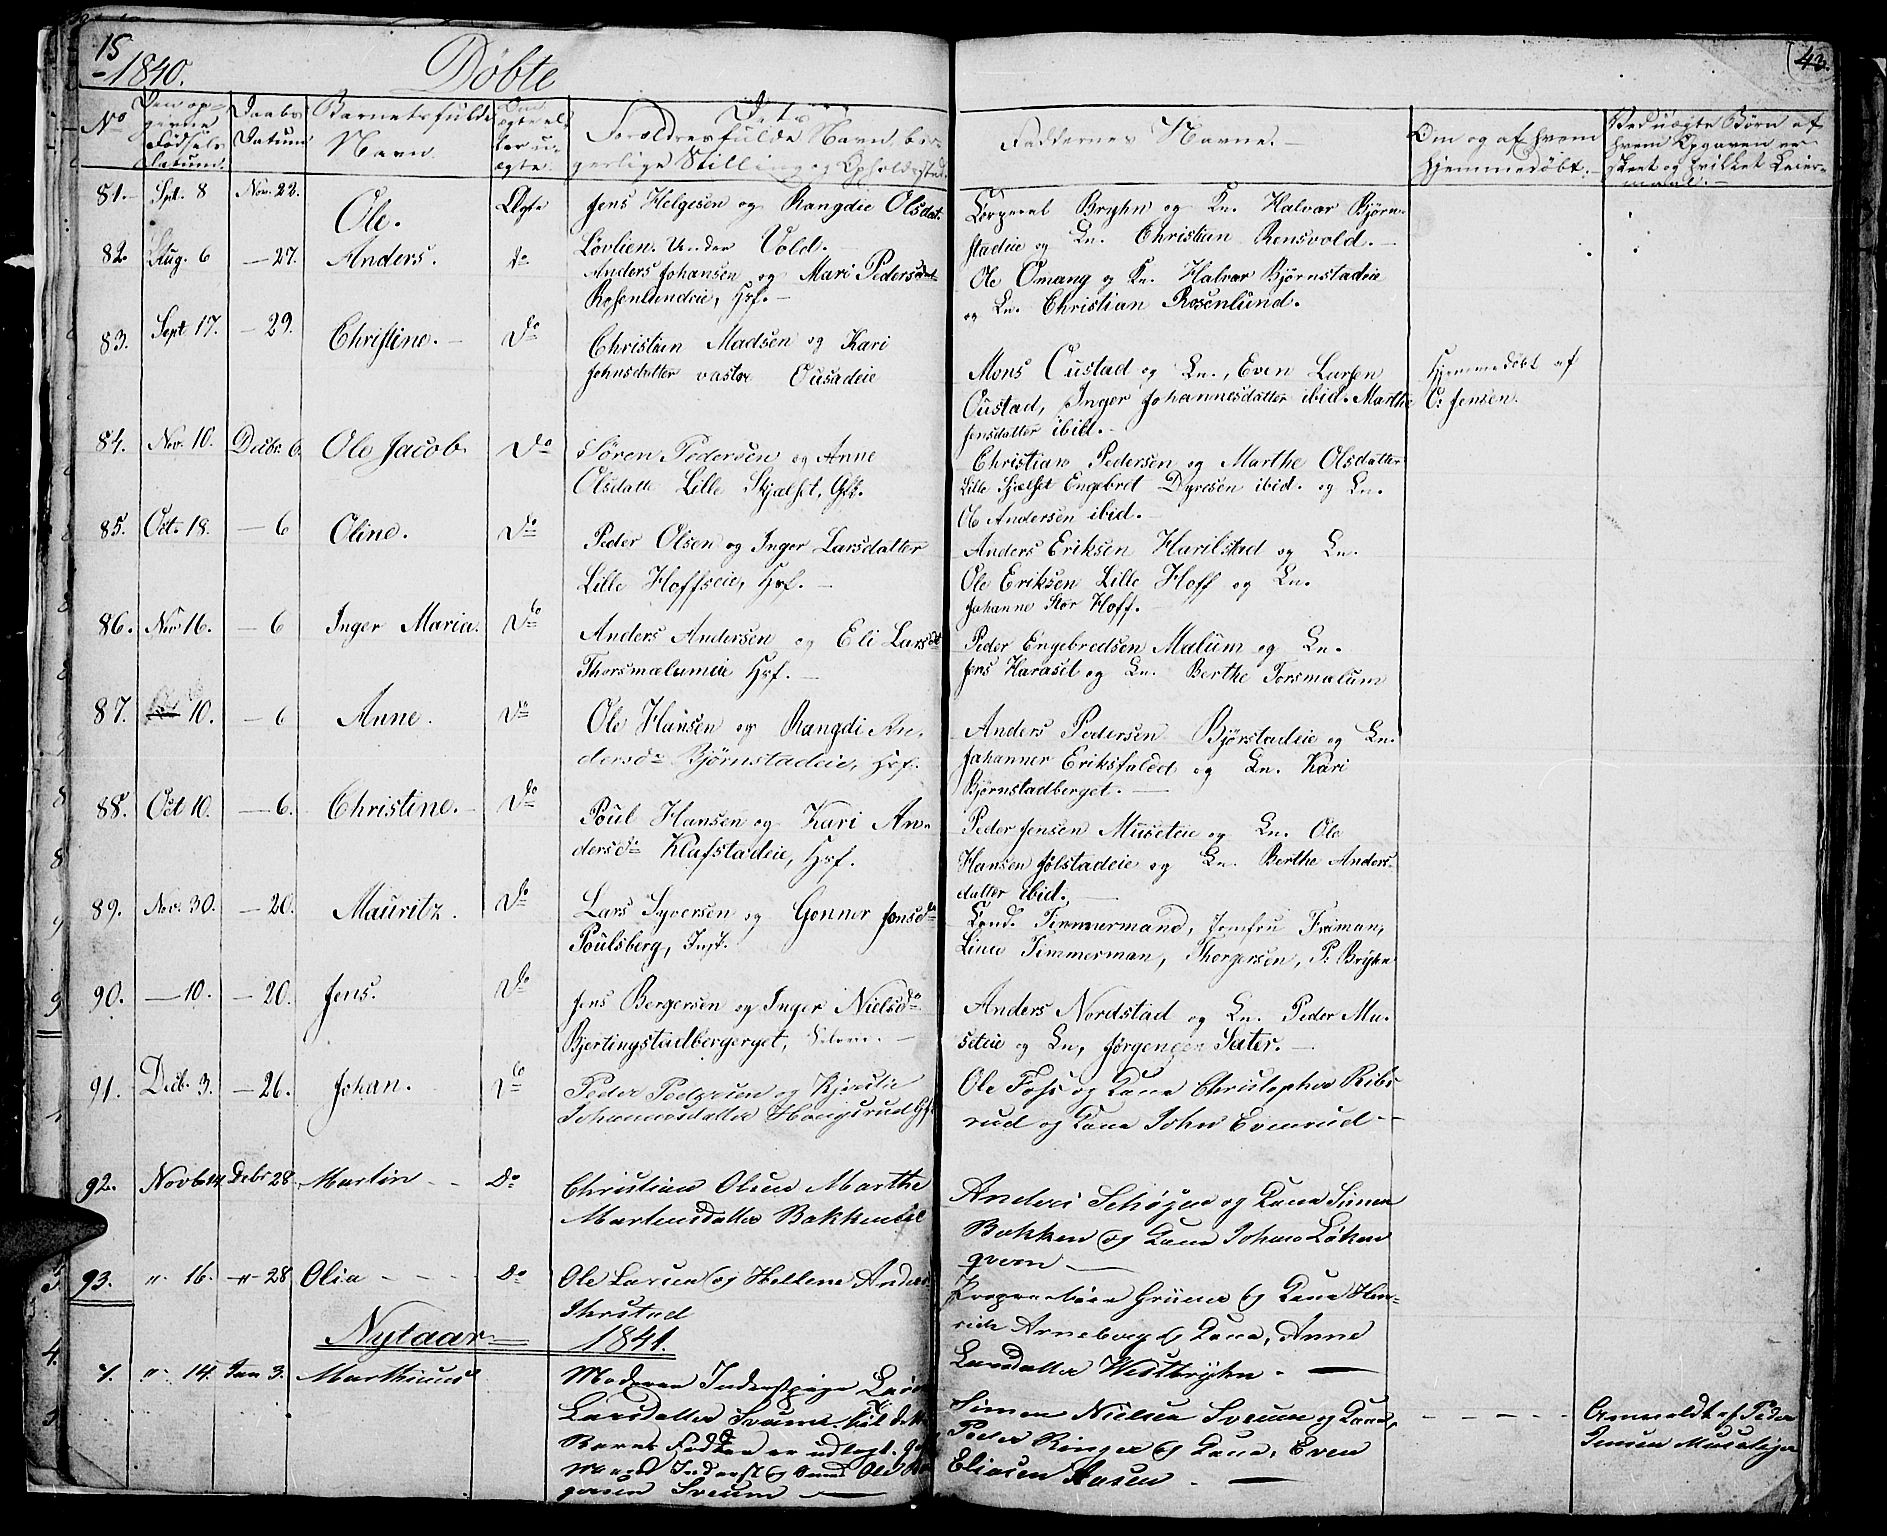 15
-1840.
Döbte
43.
No
Den op-
givne
Födsels-
datum.
Daabs
Datum
Barnets fulde
Navn.
Om
ægte el-
ler u-
ægte.
Dets
Forældres fulde Navn, bor-
gerlige Stilling og Opholdssted.
Faddernes Navne.
Om og af hvem
hjemmedöbt.
Ved uægte Börn af
hvem Opgaven er
skeet og hvilket Leier-
maal.
81. Spt. 8 Nov. 22. Ole. Ægte Jens Helgesen og Rangdie Olsdat.
Lövlien. Under Vold.
Corporal Bryhn og Kn. Halvar Björn-
stadeie og Kn. Christian Rensvold.
82. Aug. 6 - 27. Anders. do Anders Johansen og Mari Pedersdat
Rosenlundeie, Hsf.
Ole Omang og Kn. Halvar Björnstadeie
og Kn. Christian Rosenlund.
83. Sept 17. - 29. Christine. Do Christian Madsen og Kari
Johnsdatter vastre Ousadeie
Mons Oustad og Kn., Even Larsen
Oustad, Inger Johannesdatter ibid. Marthe
Jensdatter ibid.
Hjemmedöbt af
C: Jensen.
84. Nov. 10. Decbr. 6. Ole Jacob Do Sören Pedersen og Anne
Olsdatt Lille Skjælset, Gbr.
Christian Pedersen og Marthe Olsdatter
Lille Sjælset Engebret Dyresen ibid. og Kn.
Ole Andersen ibid.
85. Oct. 18. - 6 Oline. Do Peder Olsen og Inger Larsdatter
Lille Hoffseie, Hsf.
Anders Eriksen Harilstad og Kn.
Ole Eriksen Lille Hoff og Kn.
Johanne Stor Hoff.
86. Nov 16. - 6 Inger Maria. Do Anders Andersen og Eli Larsdt
Thorsmælumeie Hsf.
Peder Engebredsen Malum og Kn.
Jens Haraset og Kn. Berthe Torsmalum
87. 10. - 6 Anne. Do Ole Hansen og Rangdi An-
dersd Björnstadeie, Hsf.
Anders Pedersen Björstadeie og Kn.
Johanner Eriksfaldet og Kn. Kari
Björnstadberget.
88. Oct 10. - 6. Christine. Do Poul Hansen og Kari An-
dersd Klafstadeie, Hsf.
Peder Jensen Museteie og Kn. Ole
Hansen Jölstadeie og Kn. Berthe Anders-
datter ibid.
89. Nov. 30. - 20. Mauritz. Do Lars Syversen og Gonner Jonsd
Poulsberg, Inst.
Cand. Timmermand, Jomfru Friman,
Line Timmerman, Thorgersen, P. Bryhn
90. - 10. - 20. Jens. Do Jens Bergersen og Inger Nielsd
Bjertingstadbergerget,
Anders Nordstad og Kn. Peder Mu-
seteie og Kn, Jörgensen Sater.
91. Decb. 3. - 26. Johan. Do Peder Pedersen og Kjerstie
Johannesdatter Haugsrud
Ole Foss og Kone Christopher Ribs-
rud og Kone John Evenrud
92. Novb 14. Decbr 28. Martin Do Christian Olsen Marthe
Martensdatter Bakkentel
Anders Schöyen og Kone Simen
Bakken og Kone Johan Löken
qvern
93. " 16. " 28 Olia Do Ole Larsen og Hellene Anders
Thrustad
Proprietair Gruner og Kone Hen-
rich Arneberg og Kone, Anne
Larsdatter Westbryhn.
Nytaar 1841.
1. " 14. Jan 3. Marthinus Moderen Inderstpige
Larsdatter Sveum. til dette
Barns Fader er udlagt
Inderst og Ole
Sveum
Simen Nielsen Sveum og Kone,
Peder Ringer og Kone, Even
Eliasen Aasen.
Anmeldt af Peder
Jensen